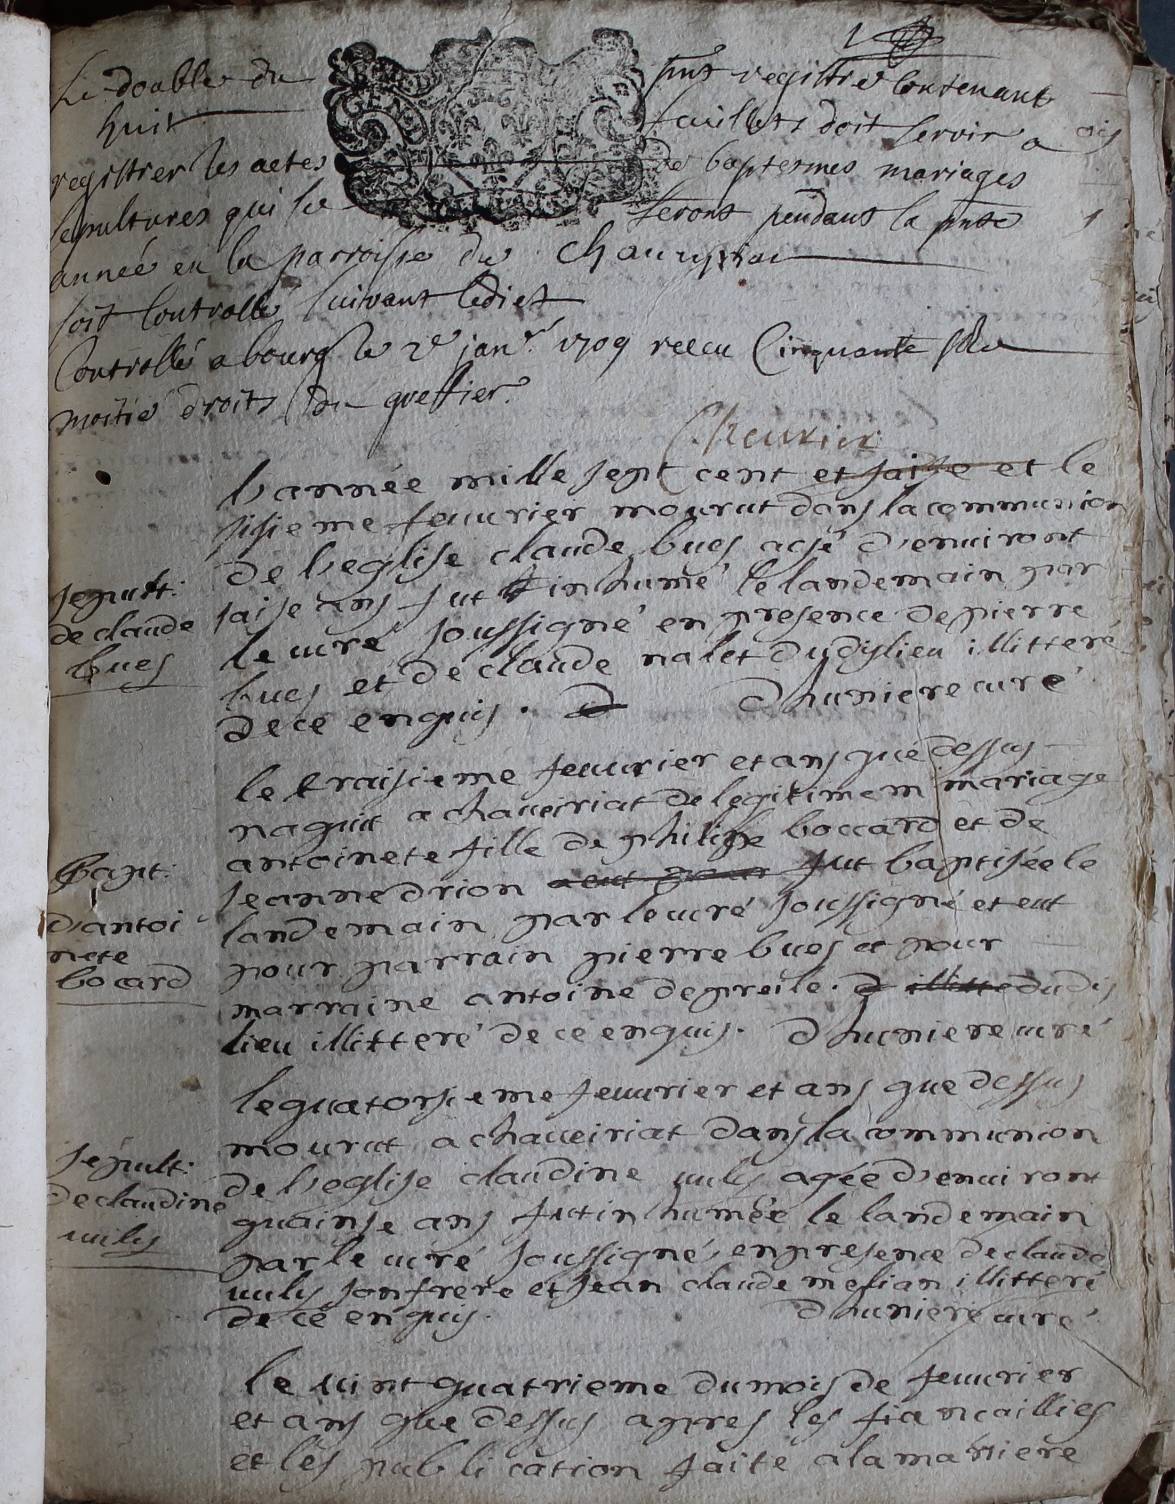 1
Le double du pnt registre contenant
huit feuillets doit servir a
registrer les actes de baptesmes mariages
sepultures qui se feront pendant la pnte
année en la parroisse de Chaveyriat
soit controllé suivant ledict
Controllé a bourg le 2e janr. 1709 receu Cinquante sols
moitié droits du greffier.
Cheurier
l'année mille sept cent et saise et le
sisieme feuurier mourut dans la communion
sepult: de l'eglise claude bues agé d'enuiront
de claude saise ans fut inhumé le landemain par
bues le curé soussigné en presence de pierre
bues et de claude nalet dudylieu illitteré
de ce enquis. Dhuniere curé
le traisieme feuurier et ans que dessus
naquit a chaveiriat de legitimem mariage
antoinete fille de philipe boccard et de
Bapt: jeanne drion aeut pour fut baptisée le
d'antoi landemain par le curé soussigné et eut
nete pour parrain pierre bues et pour
bocard marraine antoine depreile. illitte dudis
lieu illitteré de ce enquis. Dhuniere curé
le quatorsieme feuurier et ans que dessus
mourut a chaveiriat dans la communion
sépult: de l'eglise claudine uulys agée d'enuiront
de claudine quainse ans fut inhumée le landemain
uulys par le curé soussigné en presence de claude
uulys son frere et jean claude mesian illitteré
de ce enquis. Dhuniere curé
le vint quatrieme du mois de feuurier
et ans que dessus apres les fiancaillies
et les publication faite a la maniere